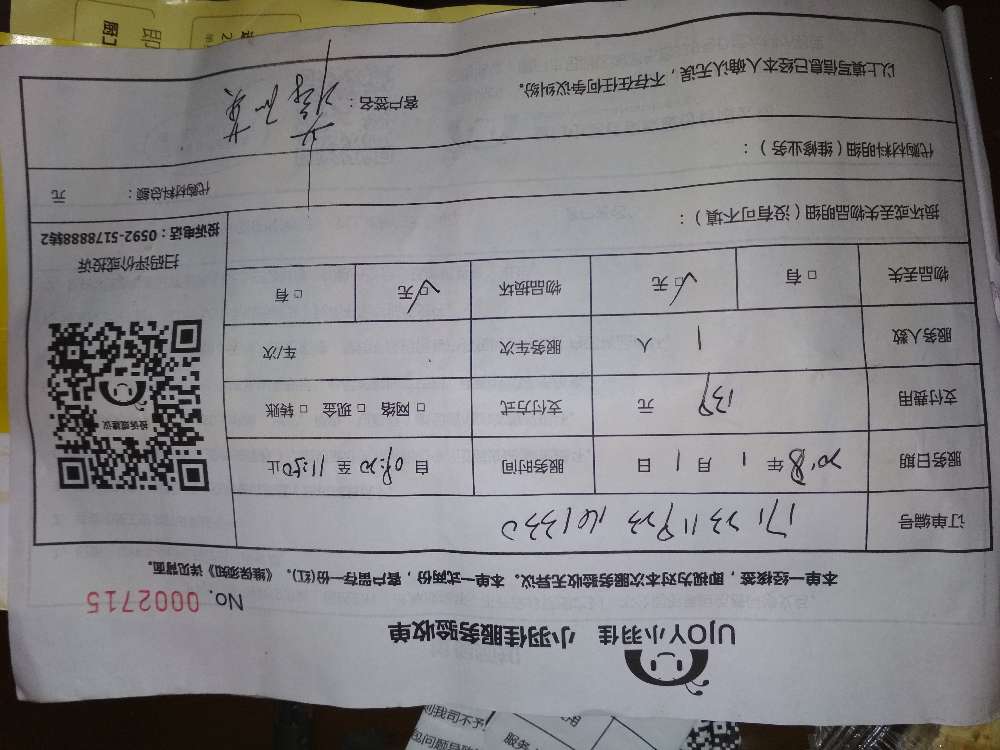 UJOY小羽佳 小羽佳服务验收单
No. 0002715
本单一经接签，即视为对本次服务验收无异议。本单一式两份，客户留存一份(红)。《维保须知》详见背面。
订单编号
服务日期 2018年 1月 1日 服务时间 自 09:20 至 11:50止
支付费用 139 元 支付方式 □ 网络 □ 现金 □ 转账
投诉或建议
服务人数 1 人 服务车次 车/次
物品丢失 □ 有 □ 无 物品损坏 □ 无 □ 有
扫码评价或投诉
投诉电话：0592-5178888转2
损坏或丢失物品明细（没有可不填）：
代购材料明细（维修业务）：
代购材料总额： 元
以上填写信息已经本人确认无误，不存在任何争议纠纷。
客户签名：